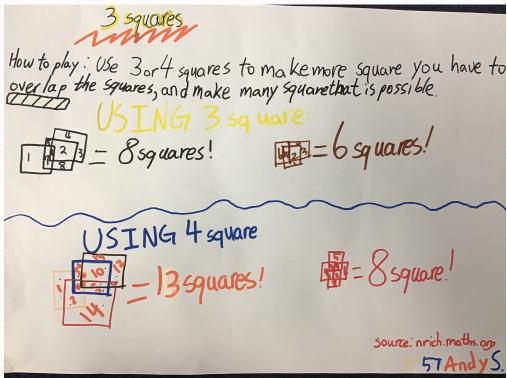 3 squares
How to play: Use 3 or 4 squares to make more square you have to
overlap the squares, and make many square that is possible.
USING 3 square:
1 2 3 4 8 = 8 squares!
2 3 = 6 squares!
USING 4 square
1 2 10 12 14 = 13 squares!
= 8 square!
source: nrich.maths.org
57 Andy S.